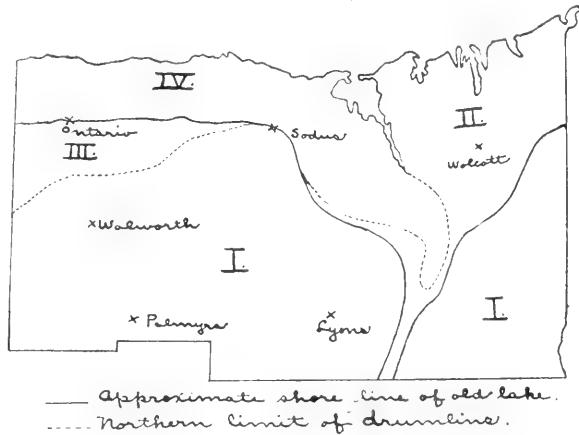 IV.
Ontario
Sodus
II.
III.
Wolcott
Walworth
I.
Palmyra
Lyons
I.
Approximate shore line of old lake.
Northern limit of drumlins.